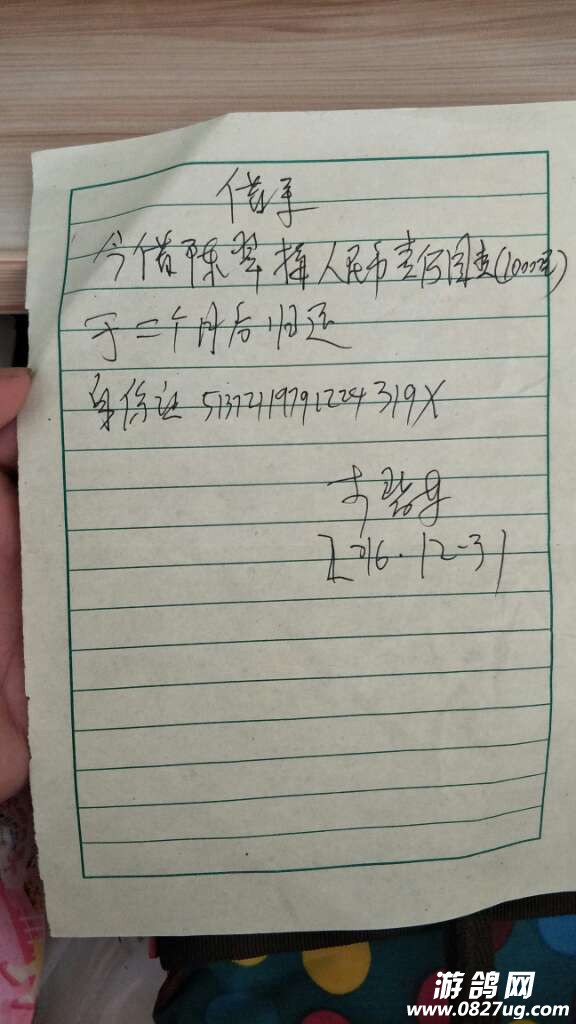 借条
今借陈翠梅人民币壹仟圆整(1000元)
于二个月后归还
身份证 51372119791224319X
2016.12-31
游鸽网
www.0827ug.com